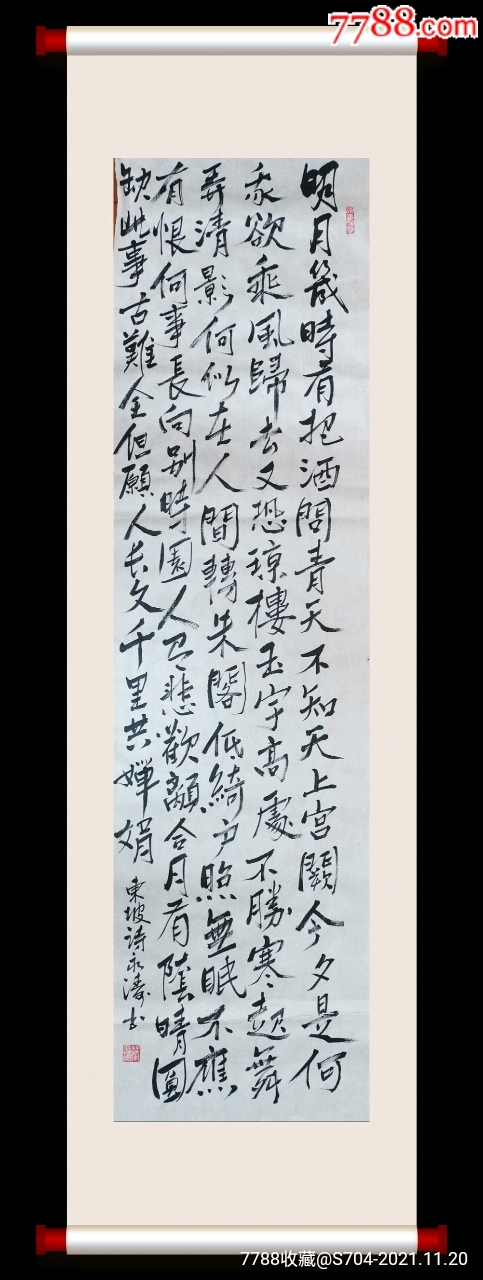 7788.com
明月幾時有把酒問青天不知天上宮闕今夕是何
我欲乘風歸去又恐瓊樓玉宇高處不勝寒起舞
弄清影何似在人間轉朱閣低綺戶照無眠不應
有恨何事長向別時園人有悲歡離合月有陰晴圓
缺此事古難全但願人長久千里共嬋娟
東坡詩永濤書
7788收藏@S704-2021.11.20